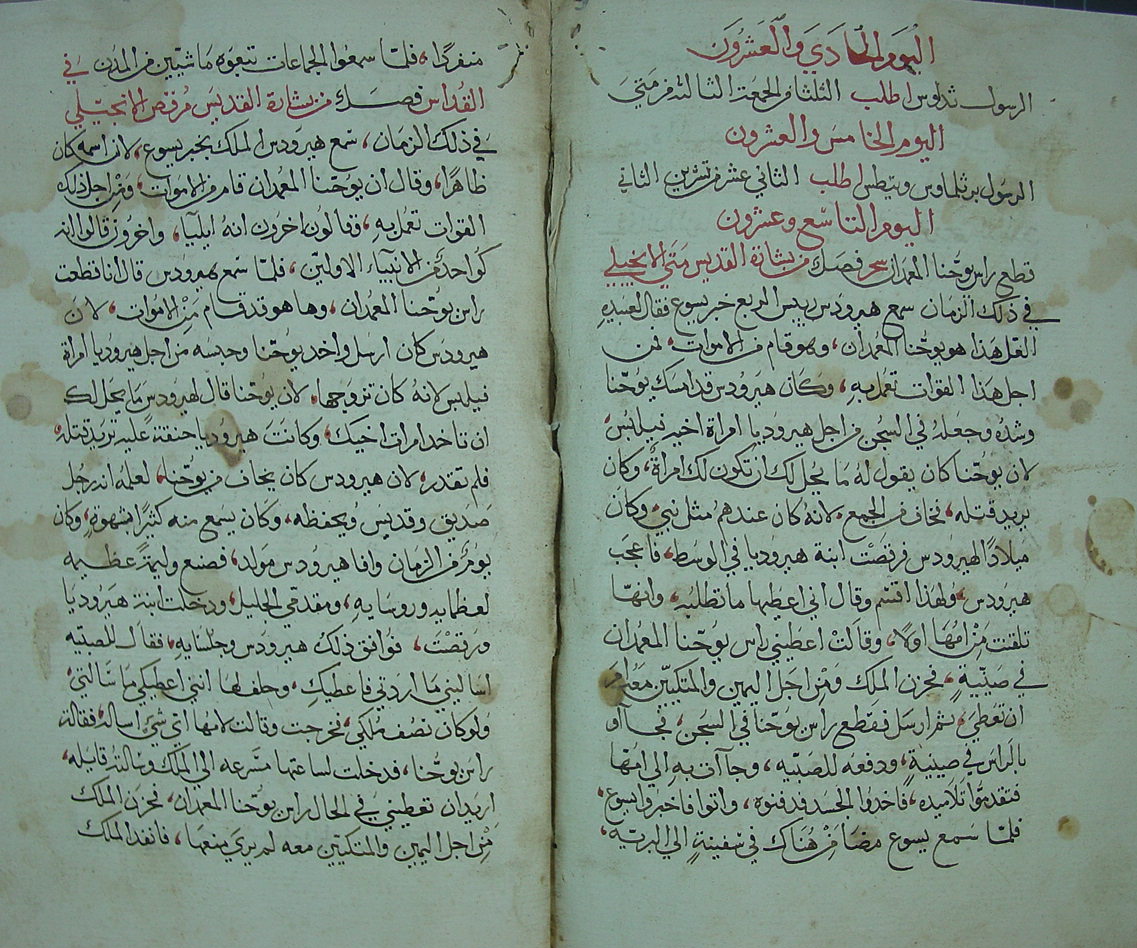 اليوم الحادي والعشرون
الرسول تداوس اطلب الثلثا من الجمعة الثالثة من متي
اليوم الخامس والعشرون
الرسول برثلماوس وتيطس اطلب الثاني عشر من تشرين الثاني
اليوم التاسع وعشرون
قطع راس يوحنا المعمدان سحر فصل من بشارة القديس متي الانجيلي
في ذلك الزمان سمع هيرودس رييس الربع خبر يسوع فقال لعبيده
القل هذا هو يوحنا المعمدان، وهو قام من الاموات، فمن
اجل هذا القوات تعمل به، وكان هيرودس قد امسك يوحنا
وشده وجعله في السجن من اجل هيروديا امراة اخيه فيلبس
لان يوحنا كان يقول له ما يحل لك ان تكون لك امراة، وكان
يريد قتله، فخاف من الجمع، لانه كان عندهم مثل نبي، وكان
ميلادًا لهيرودس فرقصت ابنة هيروديا في الوسط، فاعجب
هيرودس، ولهذا اقسم وقال اني اعطيها ما تطلبه، وانها
تلقنت من امها اولًا، وقالت اعطيني راس يوحنا المعمدان
في صينية، فحزن الملك ومن اجل اليمين والمتكيين معه امر
ان تعطي، ثم ارسل فقطع راس يوحنا في السجن، فجاآو
بالراس في صينية، ودفعه للصبيه، وجاآت به الي امها
فتقدموا تلاميده، فاخدوا الجسد فدفنوه، واتوا فاخبروا يسوع،
فلما سمع يسوع مضا من هناك في سفينة الي البريه،
منفردًا، فلما سمعوا الجماعات تبعوه ماشيين من المدن في
القداس فصل من بشارة القديس مرقص الانجيلي
في ذلك الزمان، سمع هيرودس الملك بخبر يسوع، لان اسمه كان
ظاهرًا، وقال ان يوحنا المعمدان قام من الاموات، ومن اجل ذلك
القوات تعمل به، وقالون اخرون انه ايليا، واخرون قالوا انه
كواحد من الانبياء الاولين، فلما سمع هيرودس قال انا قطعت
راس يوحنا المعمدان، وها هو قد قام من الاموات، لان
هيرودس كان ارسل واخد يوحنا وحبسه من اجل هيروديا امراة
فيلبس لانه كان تزوجها، لان يوحنا قال لهيرودس ما يحل لك
ان تاخد امرات اخيك، وكانت هيروديا حنقة عليه تريد قتله،
فلم تقدر، لان هيرودس كان يخاف من يوحنا، لعلمه انه رجل
صديق وقديس ويحفظه، وكان يسمع منه كثيرًا بشهوة، وكان
يوم من الزمان وافا هيرودس مولد، فصنع وليمة عظيمه
لعظمايه وروسايه، ومقدمي الجليل، ودخلت ابنة هيروديا
ورقصت، فوافق ذلك هيرودس وجلسايه، فقال للصبيه
اساليني ما اردتي فاعطيك، وحلف لها انني اعطيكي ما سالتي،
ولو كان نصف ملكي، فخرجت وقالت لامها اي شي اساله، فقالت
راس يوحنا، فدخلت لساعتها مسرعه الي الملك وسالته قايله،
اريد ان تعطيني في الحال راس يوحنا المعمدان، فحزن الملك
من اجل اليمين والمتكيين معه لم يري يمنعها، فانفد الملك